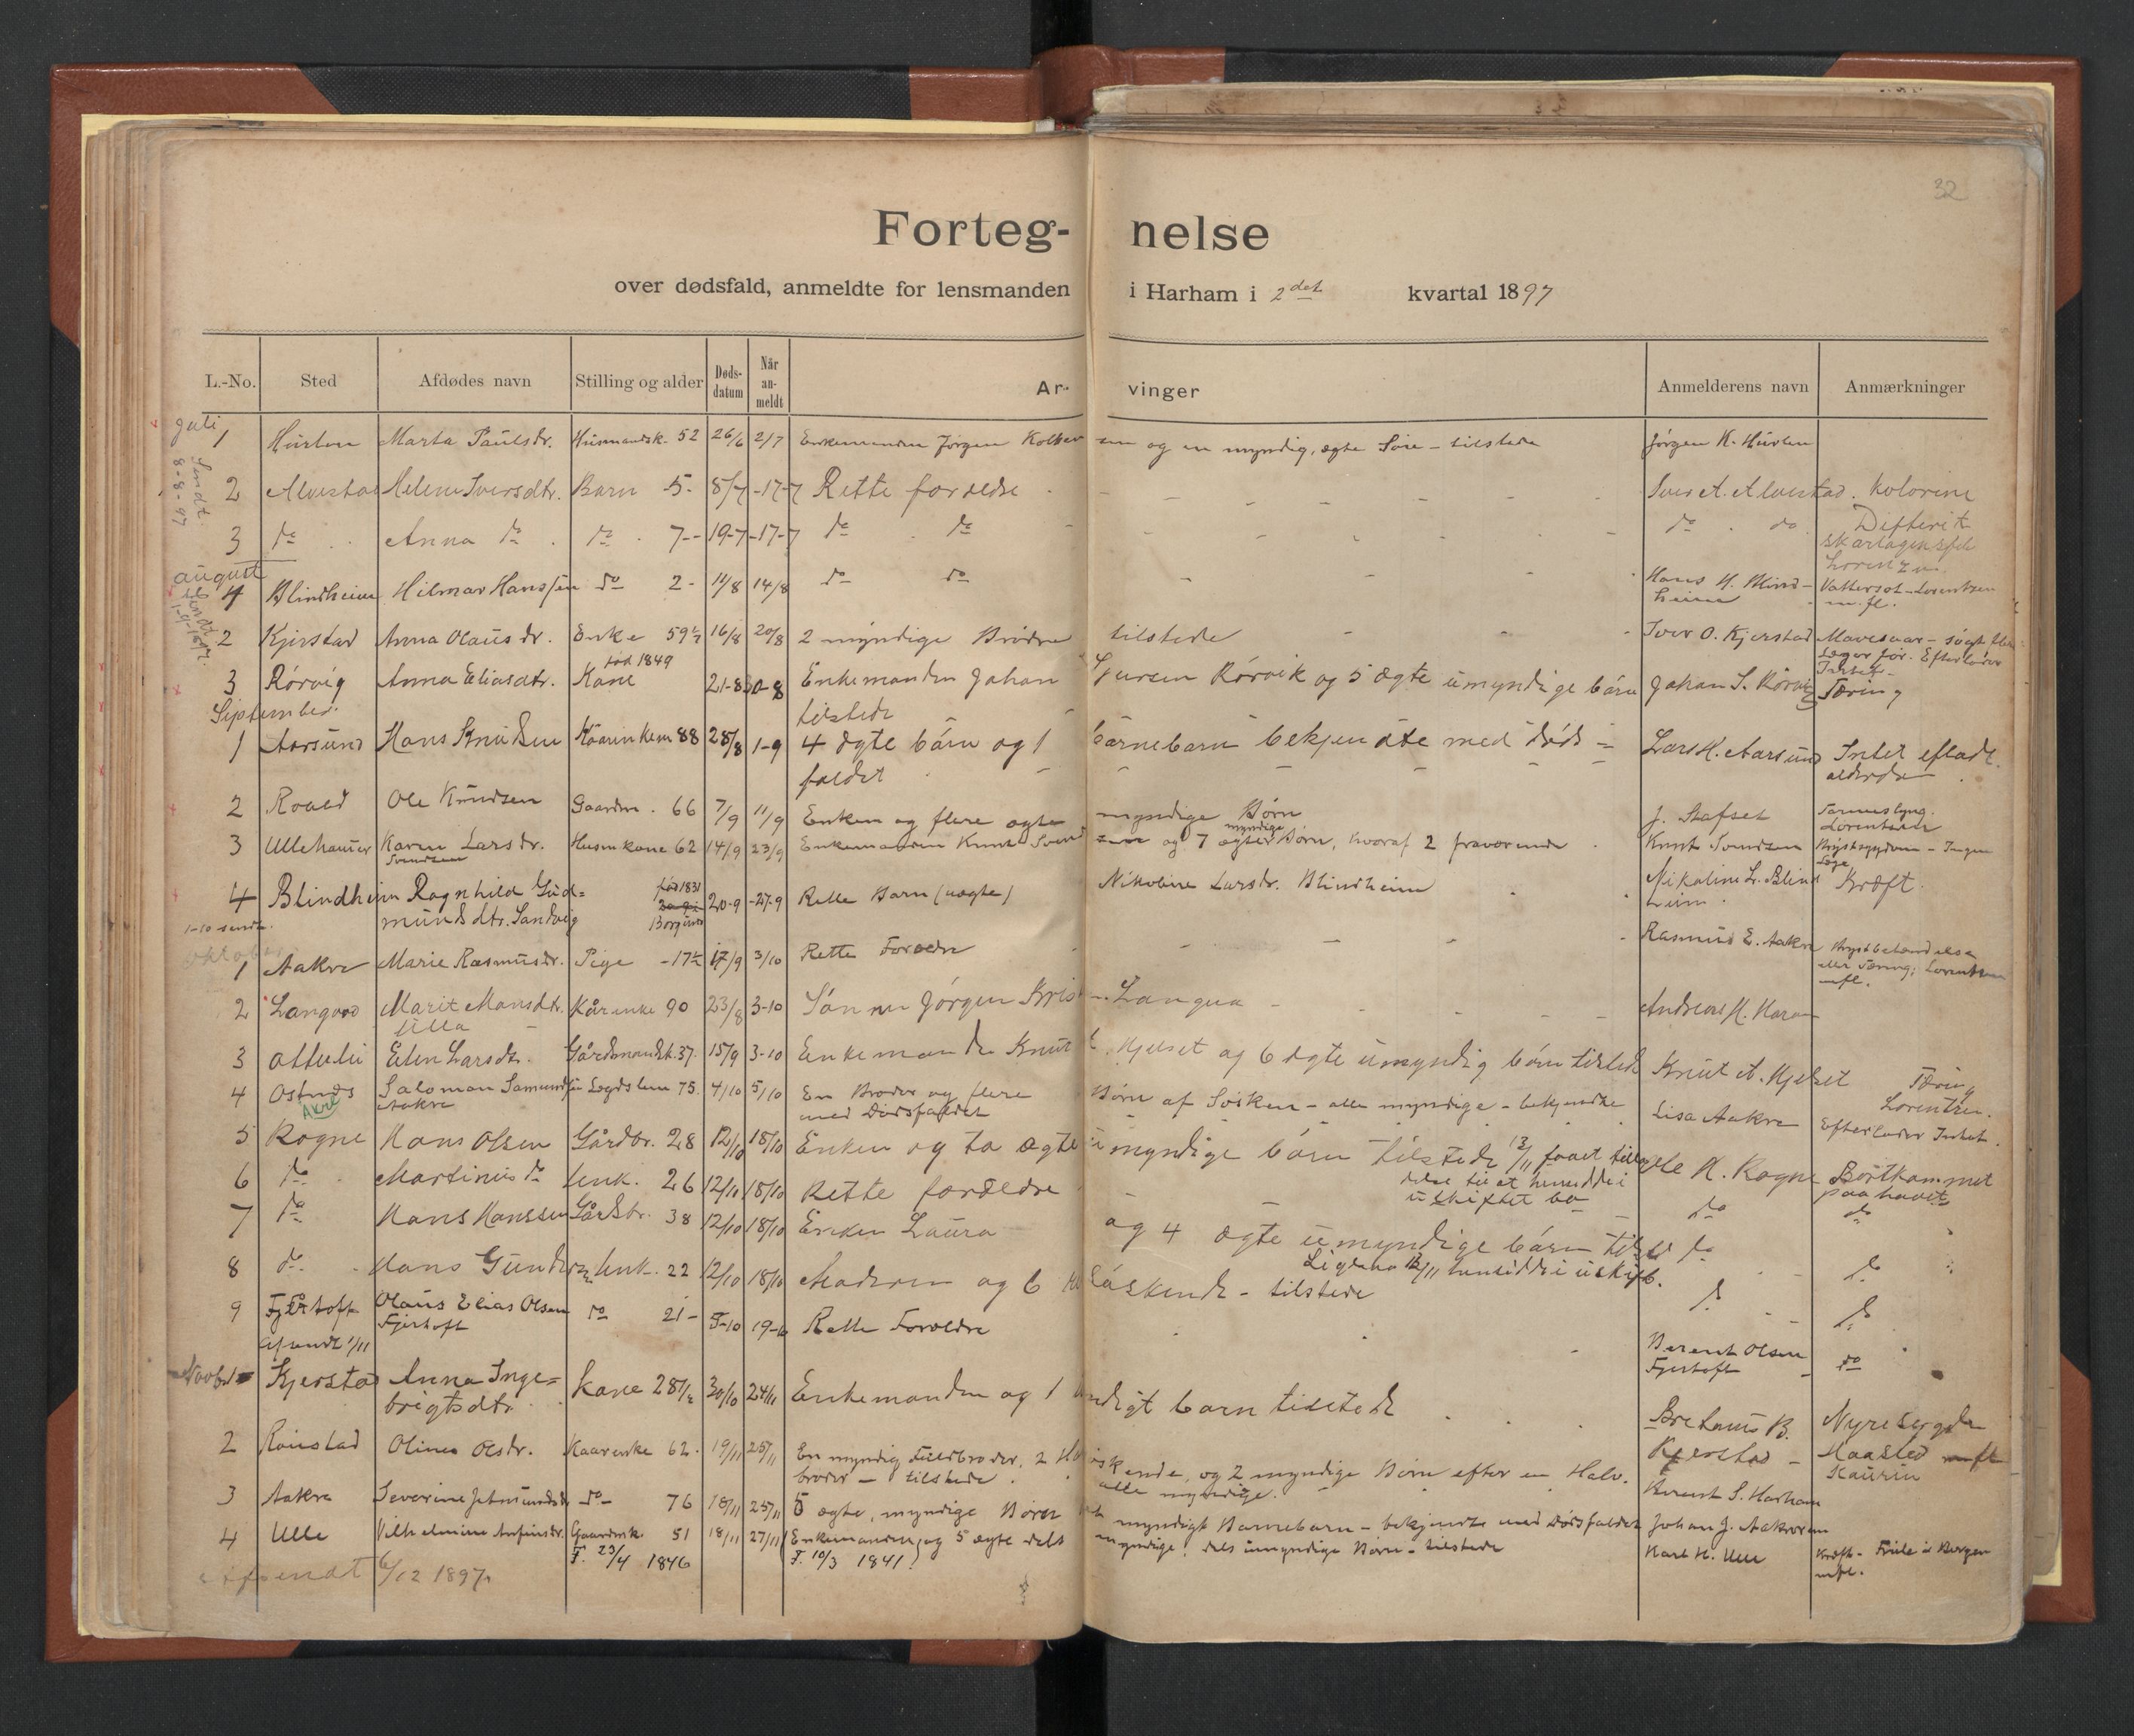 32
Forteg- nelse
over dødsfald, anmeldte for lensmanden i Harham i 2det kvartal 1897
L.-No. Sted Afdødes navn Stilling og alder Døds-datum Når an-meldt Ar- vinger Anmelderens navn Anmærkninger
Juli
1 Hurlen Marta Paulsdr. Husmandsk. 52 26/6 2/7 Enkemanden Jørgen og en myndig, ægte Søn – tilstede Jørgen K. Hurlen
Sendt 8-8-97
2 Alvestad Helene Iversdtr. Barn 5 8/7 17-7 Rette forældre Iver A. Alvestad. Kolorine
3 do Anna do do 7 19-7 17-7 do do do do Difterit
Lorenzen
august
1 Blindheim Hilmar Hanssen do 2 11/8 14/8 do do Hans H. Blind-heim Vattersot – Lorentzen m. fl.
Sendt
2 Kjerstad Anna Olausdr. Enke 59½ 16/8 20/8 2 myndige Brødre tilstede Iver O. Kjerstad Mavesaar – søgt flere Læger før. Efterlader Intet.
3 Rørvig Anna Eliasdtr. Kone fød 1849 21-8 30-8 Enkemanden Johan Sjursen Rørvik og 5 ægte umyndige børn tilstede Johan S. Rørvig Tæring
September
1 Aarsund Hans Knudsen 88 28/8 1-9 4 ægte børn og 1 barnebarn bekjendte med døds=faldet Lars H. Aarsund Intet efladt. alderdom
2 Roald Ole Knudsen Gaardm. 66 7/9 11/9 Enken og flere ægte myndige Børn J. Stafset Lorentzen
3 Ullehauen Karen Larsdr. Svendsen Husmkone 62 14/9 23/9 Enkemanden Knut Svendsen og 7 ægte myndige Børn, hvoraf 2 fraværende Knut Svendsen Brystsygdom – Ingen Læge
4 Blindheim Ragnhild Gud=mundsdtr. Sandvig fød 1831 Borgund 20-9 27-9 Rette Barn (uægte) Nikoline Larsdr. Blindheim Nikoline L. Blindheim Kræft
1-10 sendt.
oktober
1 Aakre Marie Rasmusdr. Pige 17½ 17/9 3/10 Rette Forældre Rasmus E. Aakre Brystbetændelse eller Tæring; Lorentzen mfl.
2 Longva Marit Monsdtr. Ulla Kårenke 90 23/8 3-10 Sønnen Jørgen Krist. Longva Andreas H. Haram
3 Ellen Larsdtr. Gårdmandsk. 37 15/9 3-10 Enkemanden Knut A. Hjelset og 6 ægte umyndig børn tilstede Knut A. Hjelset Tæring Lorentzen.
4 Østnes Akre Salomon Samundsen Aakre Lægdslem 75 4/10 5/10 En Broder og flere Børn af Søsken – alle myndige – bekjendte med Dødsfaldet Lisa Aakre Efterlader Intet.
5 Rogne Hans Olsen Gårdbr. 28 12/10 18/10 Enken og to ægte umyndige børn tilstede 13/11 faaet tilladelse til at hensidde i uskiftet bo Ole H. Rogne Bortkommet paa havet
6 do Martinus do Unk. 26 12/10 18/10 Rette forældre do do
7 do Hans Hanssen Gårdbr. 38 12/10 18/10 Enken Laura og 4 ægte umyndige børn tilst. Ligeledes 13/11 hensidde i uskift. do do
8 do Hans Gundersen Unk. 22 12/10 18/10 Moderen og 6 Helsøskende – tilstede do do
9 Fjertoft Olaus Elias Olsen Fjertoft do 21 19-10 Rette Forældre Berent Olsen Fjertoft do
Afsendt 1/11
Novbr 1 Kjerstad Anna Inge=brigtsdtr. kone 28½ 30/10 24/11 Enkemanden og 1 umyndigt barn tilstede Bretanus B. Kjerstad Nyresygdom Haasted mfl Kaurin
2 Ronstad Oline Olsdr. Kaarenke 62 19/11 25/11 En myndig Fuldbroder, 2 Halvsøskende, og 2 myndige Børn efter en Halv-broder – tilstede alle myndige. Berent S. Harham
3 Aakre Severine Jetmundsdr do 76 18/11 25/11 5 ægte, myndige Børn et myndigt Barnebarn – bekjendte med Dødsfaldet Johan J. Aakre
4 Ulle Vilhelmine Anfinsdr. Gaardmk. 51 18/11 27/11 Enkemanden og 5 ægte dels myndige, dels umyndige Børn – tilstede Karl K. Ulle Kræft – i Bergen mfl.
F. 23/4 1846 F. 10/3 1841
Afsendt 6/12 1897.